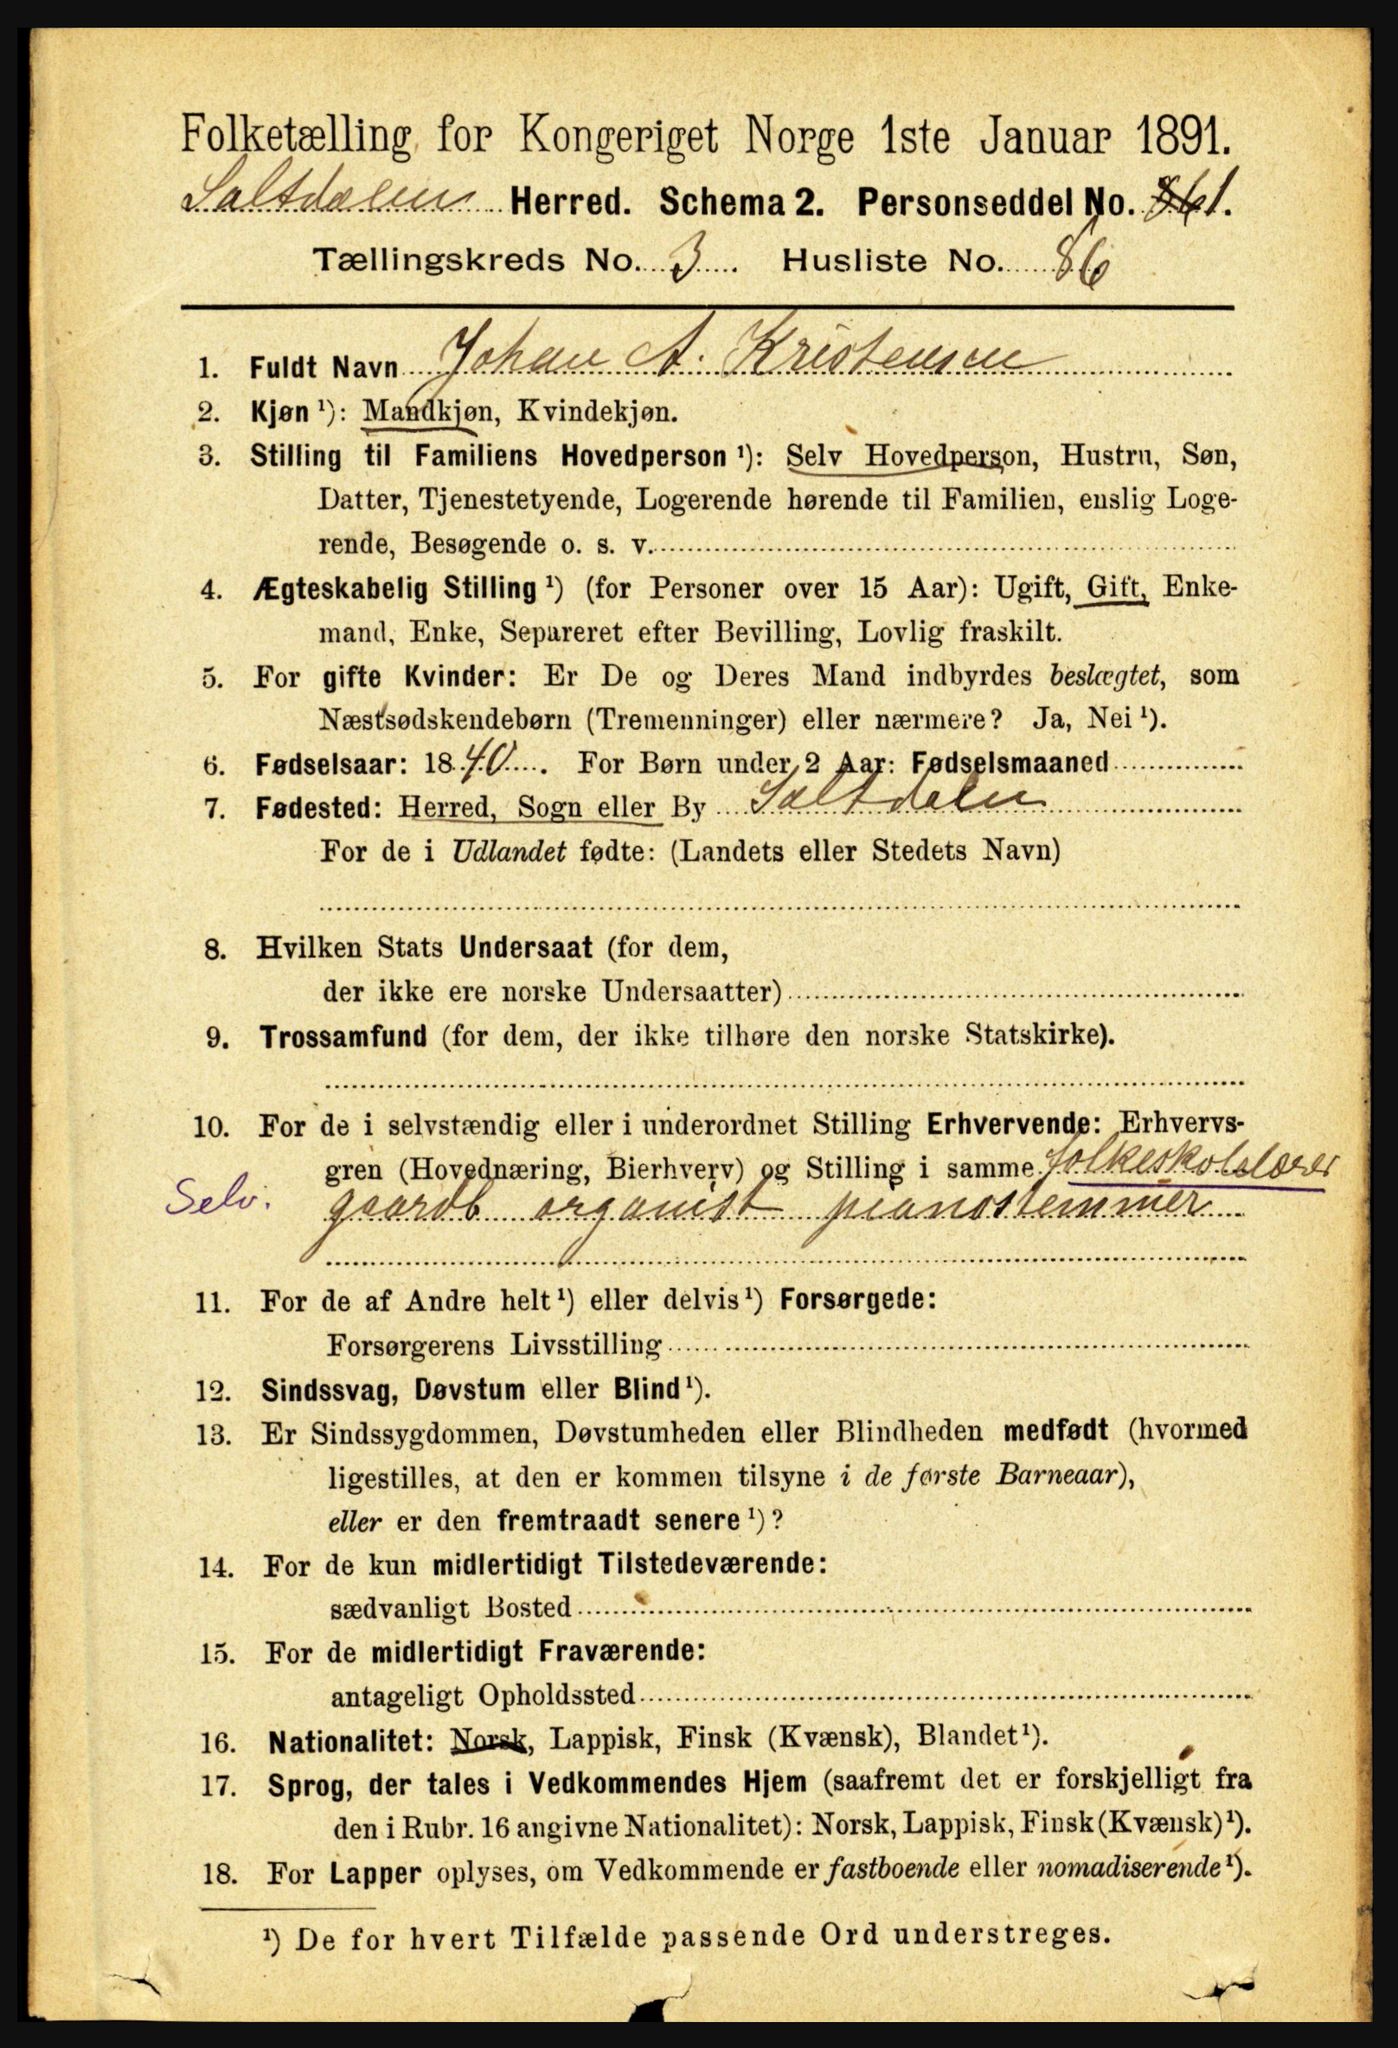 Folketælling for Kongeriget Norge 1ste Januar 1891.
Saltdalen Herred. Schema 2. Personseddel No. 861.
Tællingskreds No. 3. Husliste No. 86
1. Fuldt Navn Johan A. Kristensen
2. Kjøn ¹): Mandkjøn, Kvindekjøn.
3. Stilling til Familiens Hovedperson ¹): Selv Hovedperson, Hustru, Søn,
Datter, Tjenestetyende, Logerende hørende til Familien, enslig Loge-
rende, Besøgende o. s. v.
4. Ægteskabelig Stilling ¹) (for Personer over 15 Aar): Ugift, Gift, Enke-
mand, Enke, Separeret efter Bevilling, Lovlig fraskilt.
5. For gifte Kvinder: Er De og Deres Mand indbyrdes beslægtet, som
Næstsødskendebørn (Tremenninger) eller nærmere? Ja, Nei ¹).
6. Fødselsaar: 1840. For Børn under 2 Aar: Fødselsmaaned
7. Fødested: Herred, Sogn eller By Saltdalen
For de i Udlandet fødte: (Landets eller Stedets Navn)
8. Hvilken Stats Undersaat (for dem,
der ikke ere norske Undersaatter)
9. Trossamfund (for dem, der ikke tilhøre den norske Statskirke).
10. For de i selvstændig eller i underordnet Stilling Erhvervende: Erhvervs-
gren (Hovednæring, Bierhverv) og Stilling i samme folkeskolelærer
Selv. gaardb organist pianostemmer
11. For de af Andre helt ¹) eller delvis ¹) Forsørgede:
Forsørgerens Livsstilling
12. Sindssvag, Døvstum eller Blind ¹).
13. Er Sindssygdommen, Døvstumheden eller Blindheden medfødt (hvormed
ligestilles, at den er kommen tilsyne i de første Barneaar),
eller er den fremtraadt senere ¹)?
14. For de kun midlertidigt Tilstedeværende:
sædvanligt Bosted
15. For de midlertidigt Fraværende:
antageligt Opholdssted
16. Nationalitet: Norsk, Lappisk, Finsk (Kvænsk), Blandet ¹).
17. Sprog, der tales i Vedkommendes Hjem (saafremt det er forskjelligt fra
den i Rubr. 16 angivne Nationalitet): Norsk, Lappisk, Finsk (Kvænsk) ¹).
18. For Lapper oplyses, om Vedkommende er fastboende eller nomadiserende ¹).
¹) De for hvert Tilfælde passende Ord understreges.